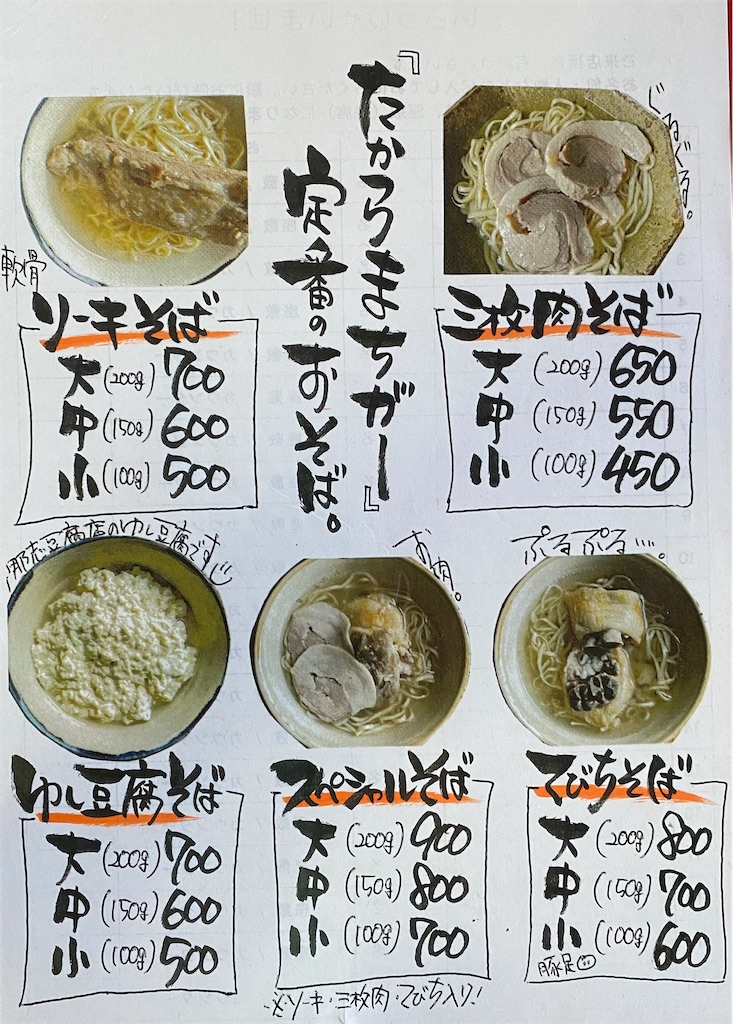 『たからまちがー』
定番のおそば。
軟骨
ソーキそば
大(200g)700
中(150g)600
小(100g)500
ぐるぐる。
三枚肉そば
大(200g)650
中(150g)550
小(100g)450
豆腐店のゆし豆腐です
ゆし豆腐そば
大(200g)700
中(150g)600
小(100g)500
お肉。
スペシャルそば
大(200g)900
中(150g)800
小(100g)700
※ソーキ・三枚肉・てびち入り!
ぷるぷる…。
てびちそば
大(200g)800
中(150g)700
小(100g)600
豚足